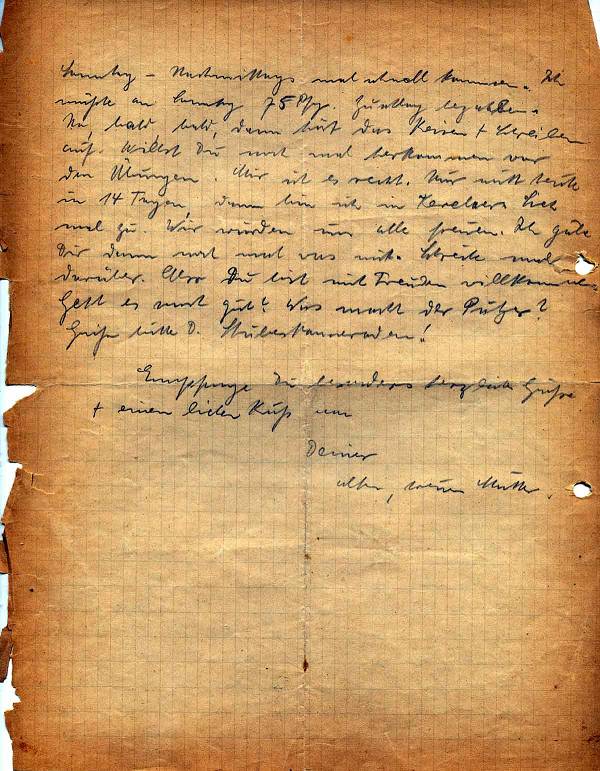 Sonntag – Nachmittags mal schnell kommen. Ich
mußte am Sonntag 75 Pfg. Zuschlag bezahlen.
Na, bald, bald, dann hört das Reisen + Schreiben
auf. Willst Du noch mal herkommen vor
den Übungen. Mir ist es recht. Nur nicht heute
in 14 Tagen, dann bin ich in
mal zu. Wir würden uns alle freuen. Ich gebe
Dir dann noch mal was mit. Schreibe mal
darüber. Also Du bist mit Freuden willkommen.
Geht es noch gut? Was macht der Putzer?
Grüße bitte D. Stubenkameraden!
Empfange Du besonders herzliche Grüße
+ einen lieben Kuß von
Deiner
alten, treuen Mutter.